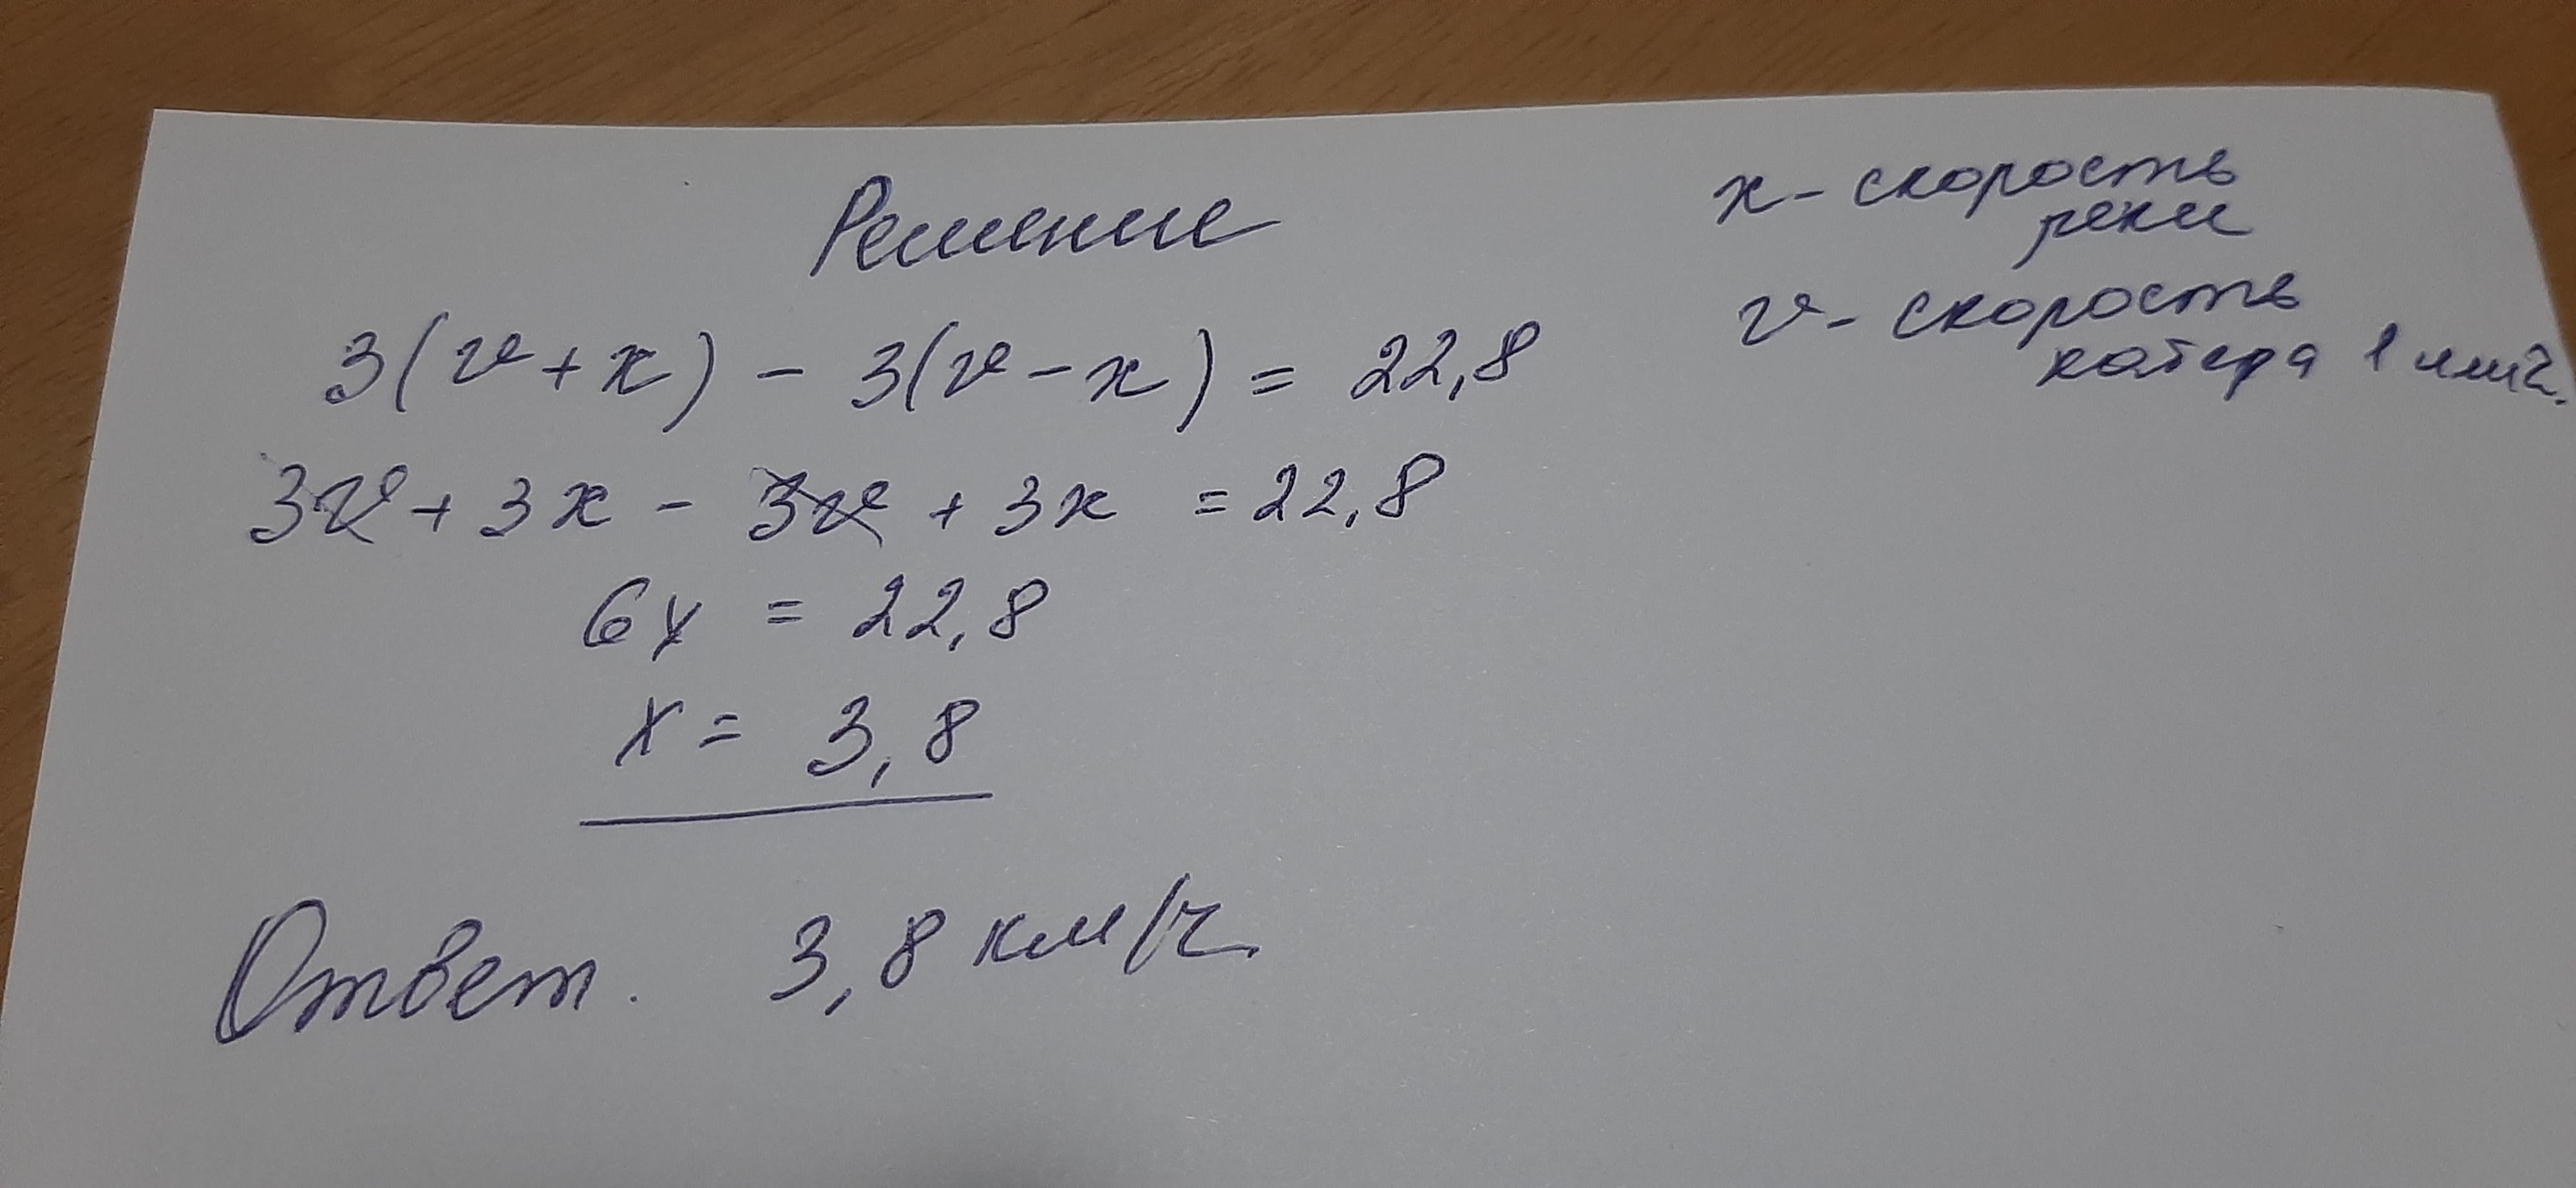 Решение
3(v+x) - 3(v-x) = 22,8
3v + 3x - 3v + 3x = 22,8
6x = 22,8
x = 3,8
Ответ. 3,8 км/ч.
x - скорость
реки
v - скорость
катера 1